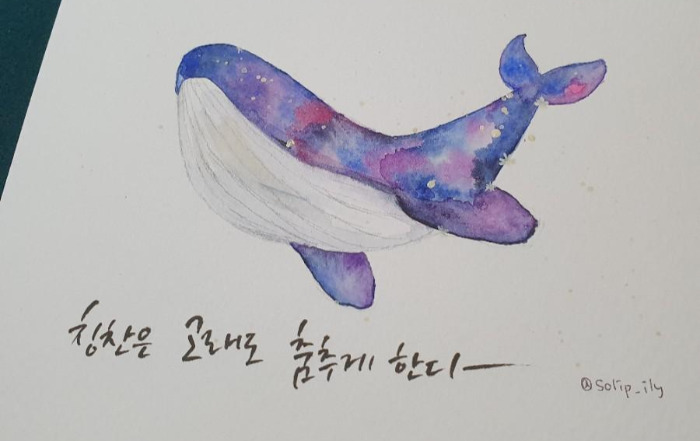 칭찬은 고래도 춤추게 한다
@solip_ily